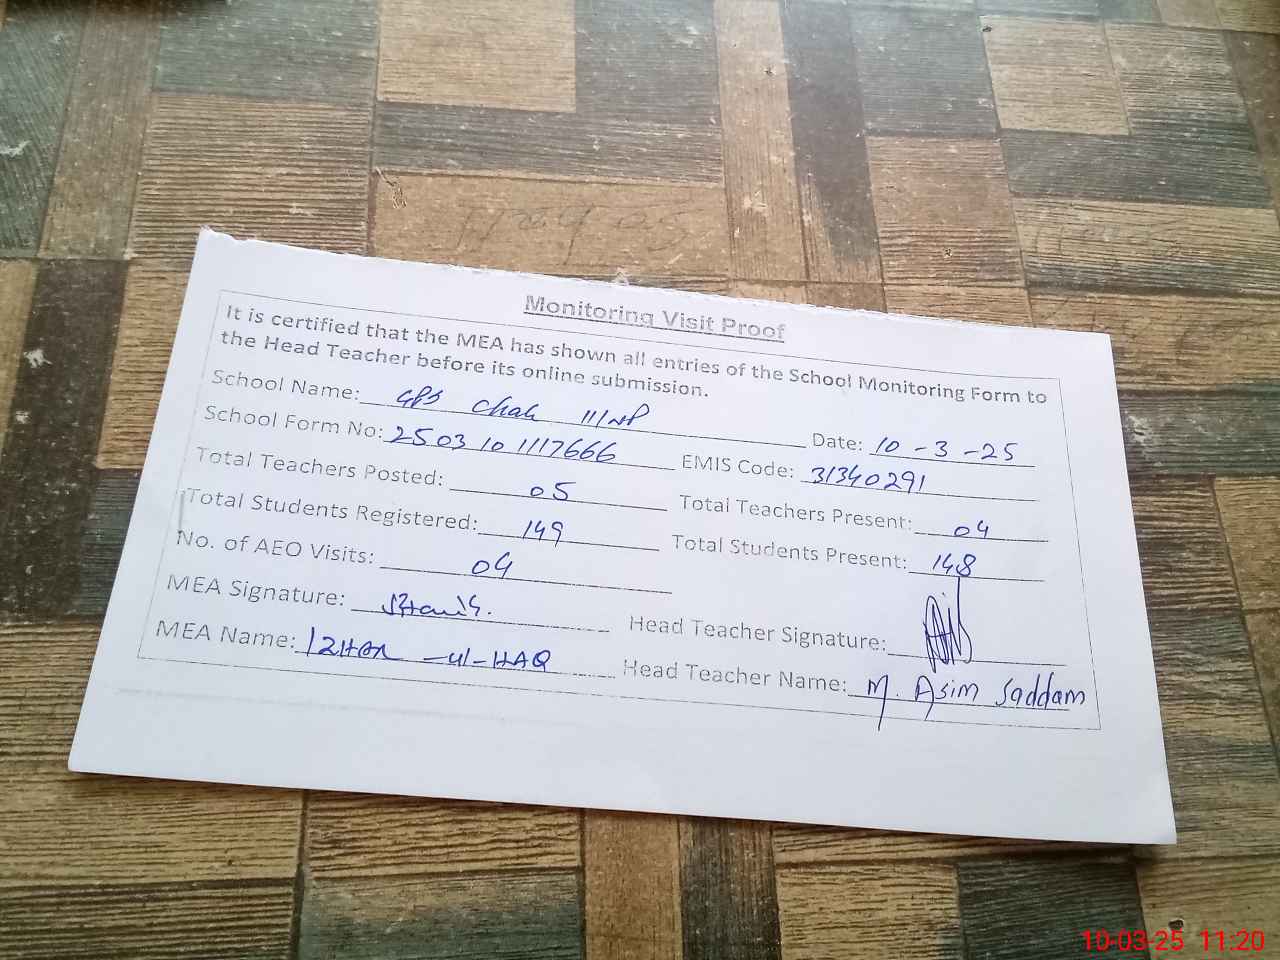 Monitoring Visit Proof
It is certified that the MEA has shown all entries of the School Monitoring Form to
the Head Teacher before its online submission.
School Name: GPS Chak 111/NP Date: 10-3-25
School Form No: 2503101117666 EMIS Code: 31340291
Total Teachers Posted: 05 Total Teachers Present: 04
Total Students Registered: 149 Total Students Present: 148
No. of AEO Visits: 04
MEA Signature: Head Teacher Signature:
MEA Name: IZHAR-ul-HAQ Head Teacher Name: M. Asim Saddam
10-03-25 11:20